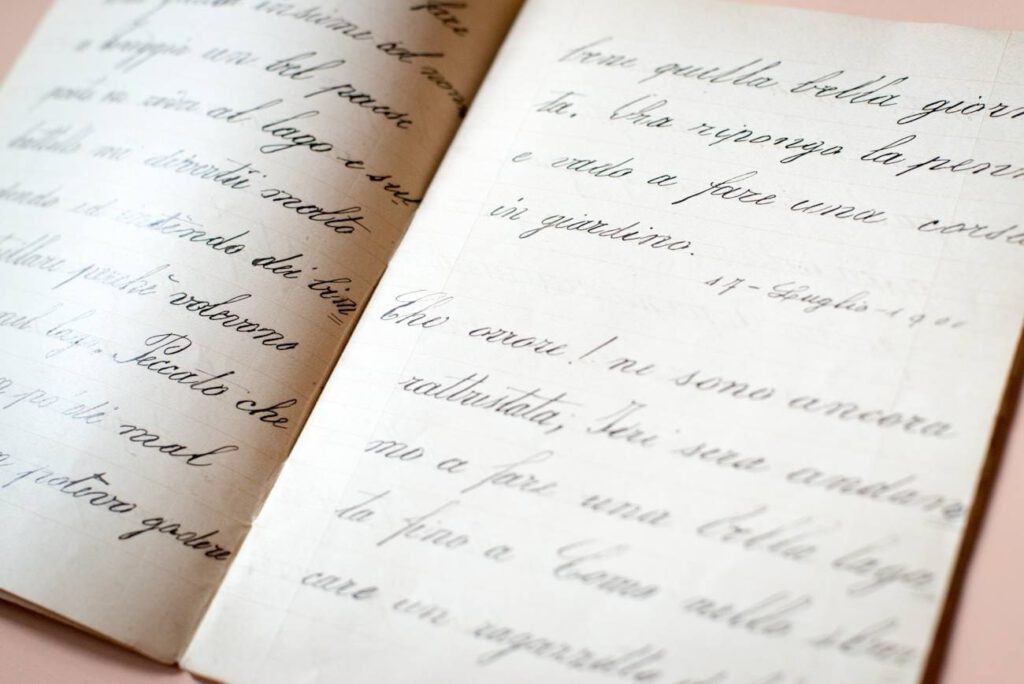 fare
insieme col nonno
e viaggio un bel paese
al lago e sul
battello mi divertii molto
ed sentendo dei bim
strillare perché volevano
nel lago. Peccato che
un po' di mal
potevo godere
bene quella bella giorn
ta. Ora ripongo la penn
e vado a fare una corsa
in giardino.
17 - Luglio - 19
Che orrore! ne sono ancora
rattristata; Ieri sera andam
mo a fare una bella
ta fino a Como nello
care un ragazzello